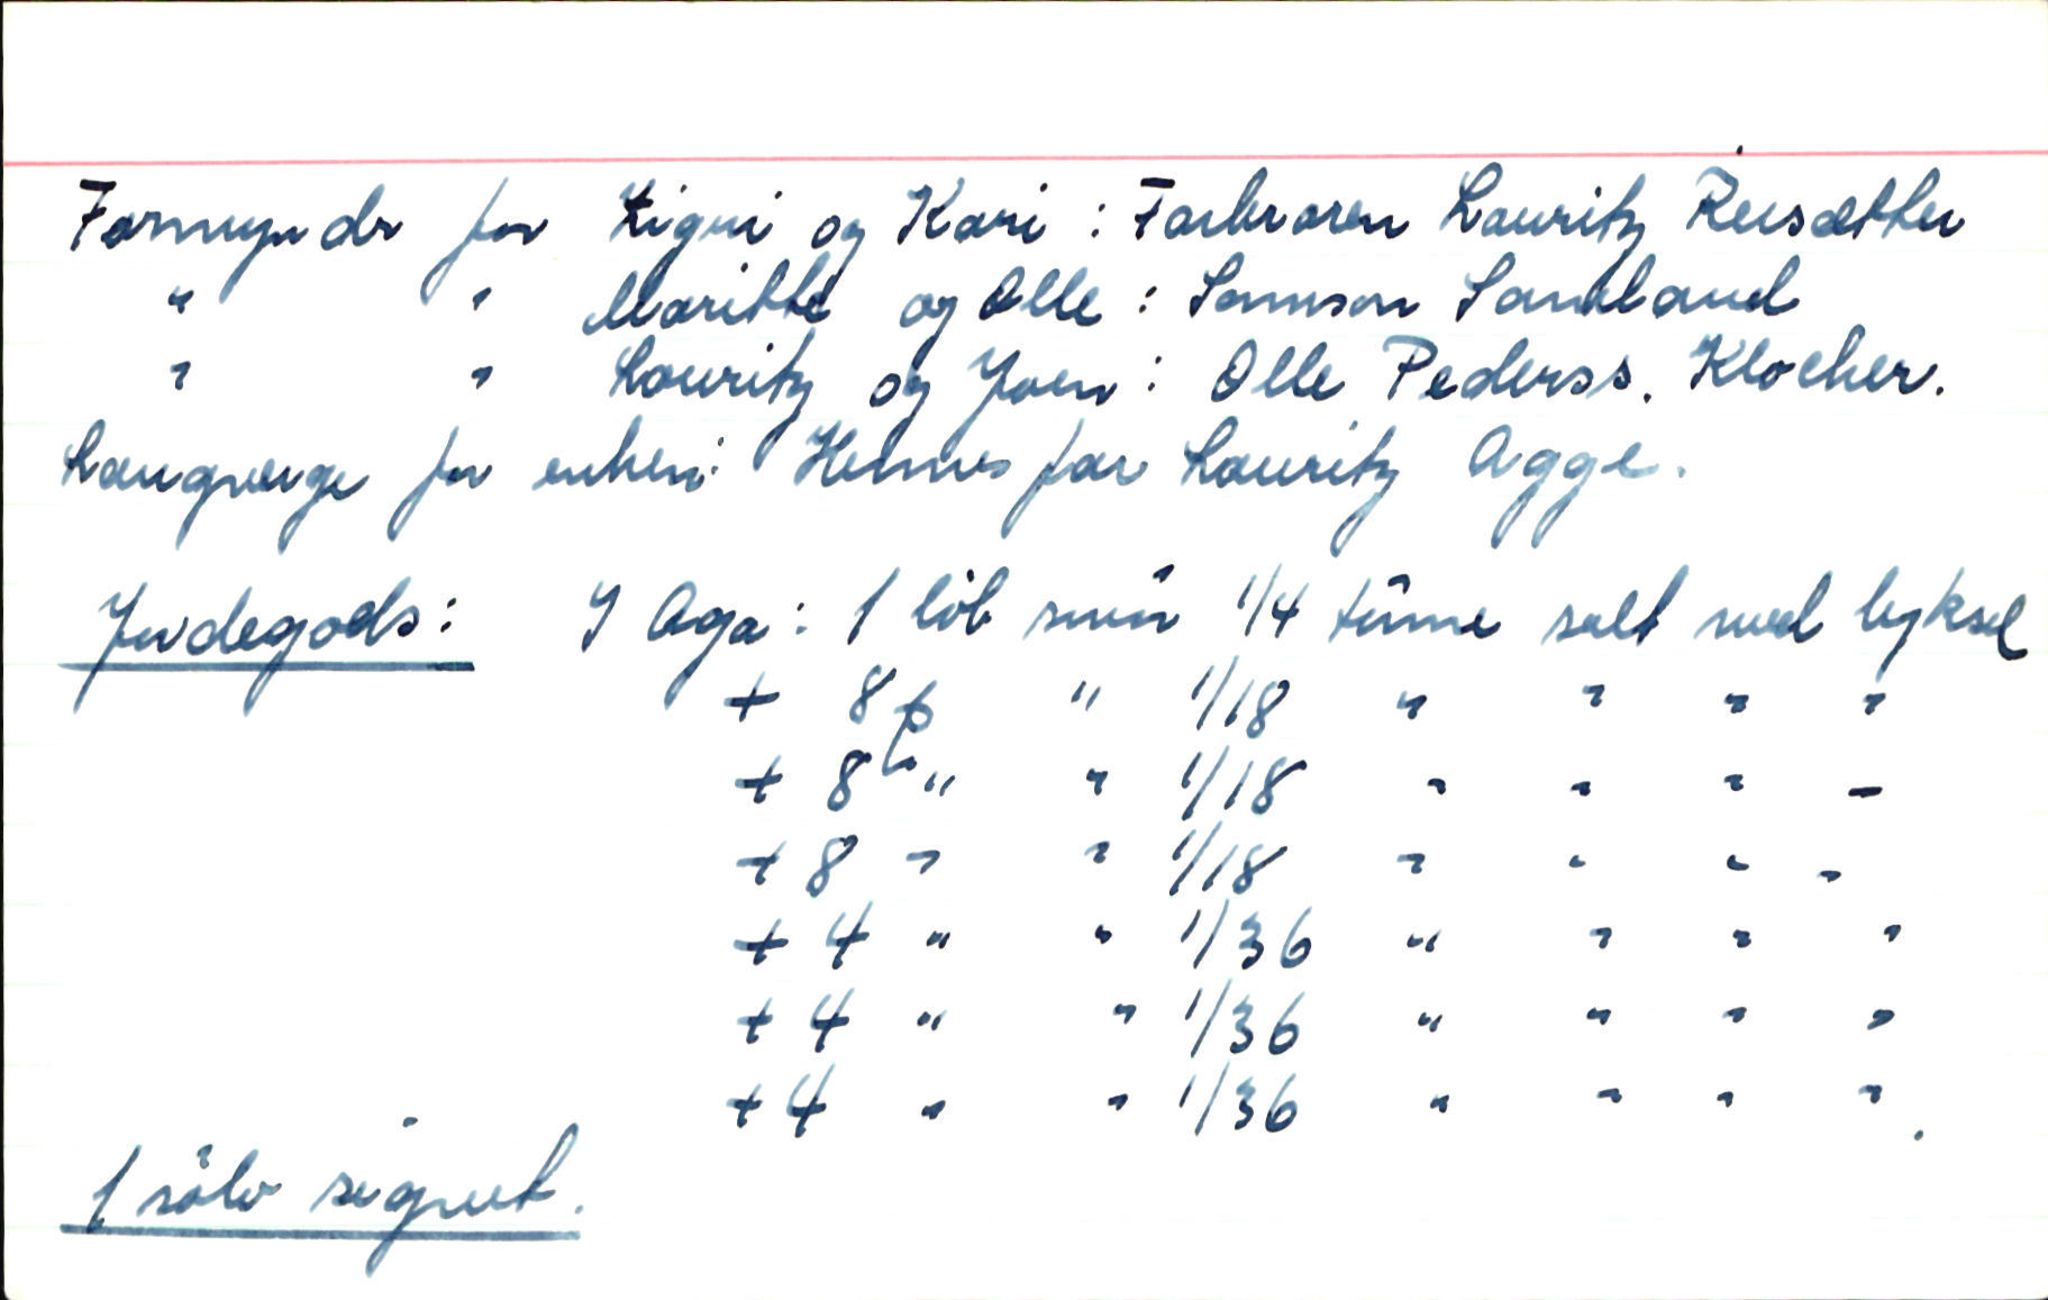 Formyndr for Zigri og Kari: Farbroren Lauritz Reisætter
" " Maritte og Olle: Samson Sandland
" " Lauritz og Joen: Olle Pederss. Klocker.
Laugverge for enken: Hennes far Lauritz Agge.
Jordegods: I Aga: 1 löb smör 1/4 tünne salt med byksel
+ 8 p " 1/18 " " " "
+ 8 " " 1/18 " " " "
+ 8 " " 1/18 " " " "
+ 4 " " 1/36 " " " "
+ 4 " " 1/36 " " " "
+ 4 " " 1/36 " " " ".
1 sölv signet.